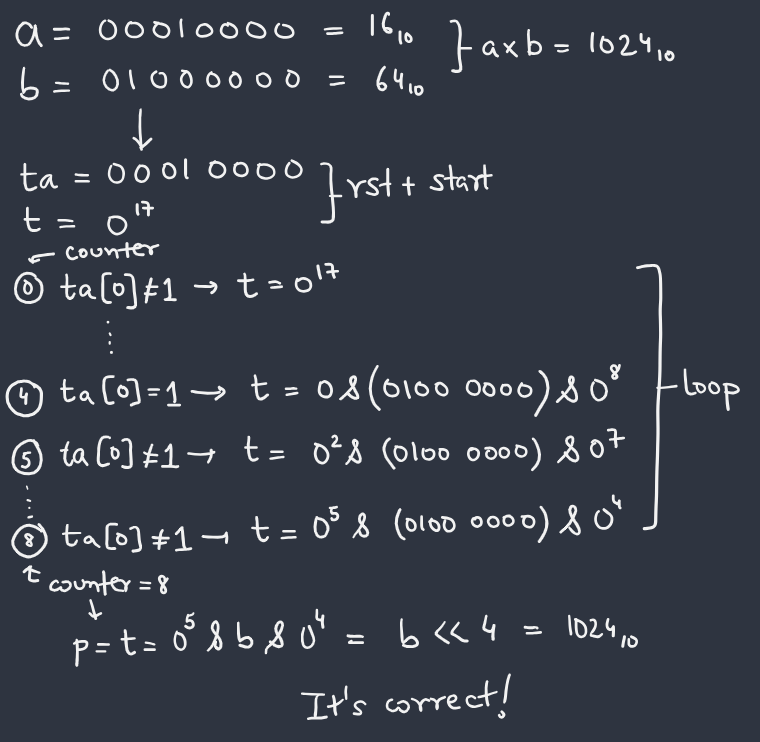 a = 00010000 = 16₁₀ } a x b = 1024₁₀
b = 01000000 = 64₁₀
↓
ta = 00010000 } rst + start
t = 0¹⁷
← counter
⓪ ta[0]≠1 → t = 0¹⁷
⋮
④ ta[0]=1 → t = 0 & (0100 0000) & 0⁸
⑤ ta[0]≠1 → t = 0² & (0100 0000) & 0⁷
⋮
⑧ ta[0]≠1 → t = 0⁵ & (0100 0000) & 0⁴
} loop
↑ counter = 8
↓
p = t = 0⁵ & b & 0⁴ = b << 4 = 1024₁₀
It's correct!